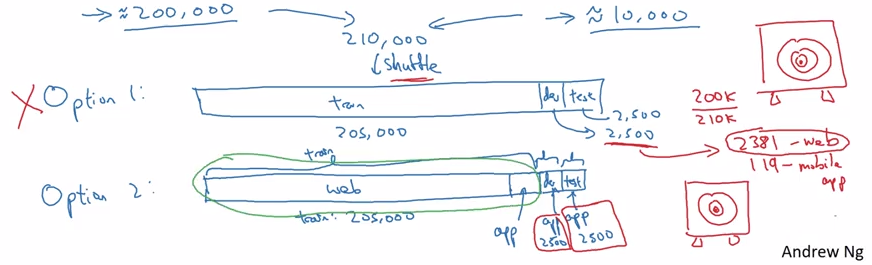 → ≈200,000
→ ≈ 10,000
210,000
↓ shuffle
X Option 1:
train
dev
test
2,500
2,500
205,000
200K
210K
2381 - web
119 - mobile app
Option 2:
train
dev
test
web
app
dev
test
train: 205,000
app
2500
app
2500
Andrew Ng